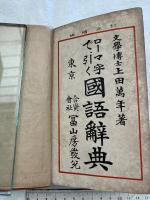 文學博士上田萬年著
ローマ字
で引く
國語辭典
東京
合資
會社
冨山房發兌